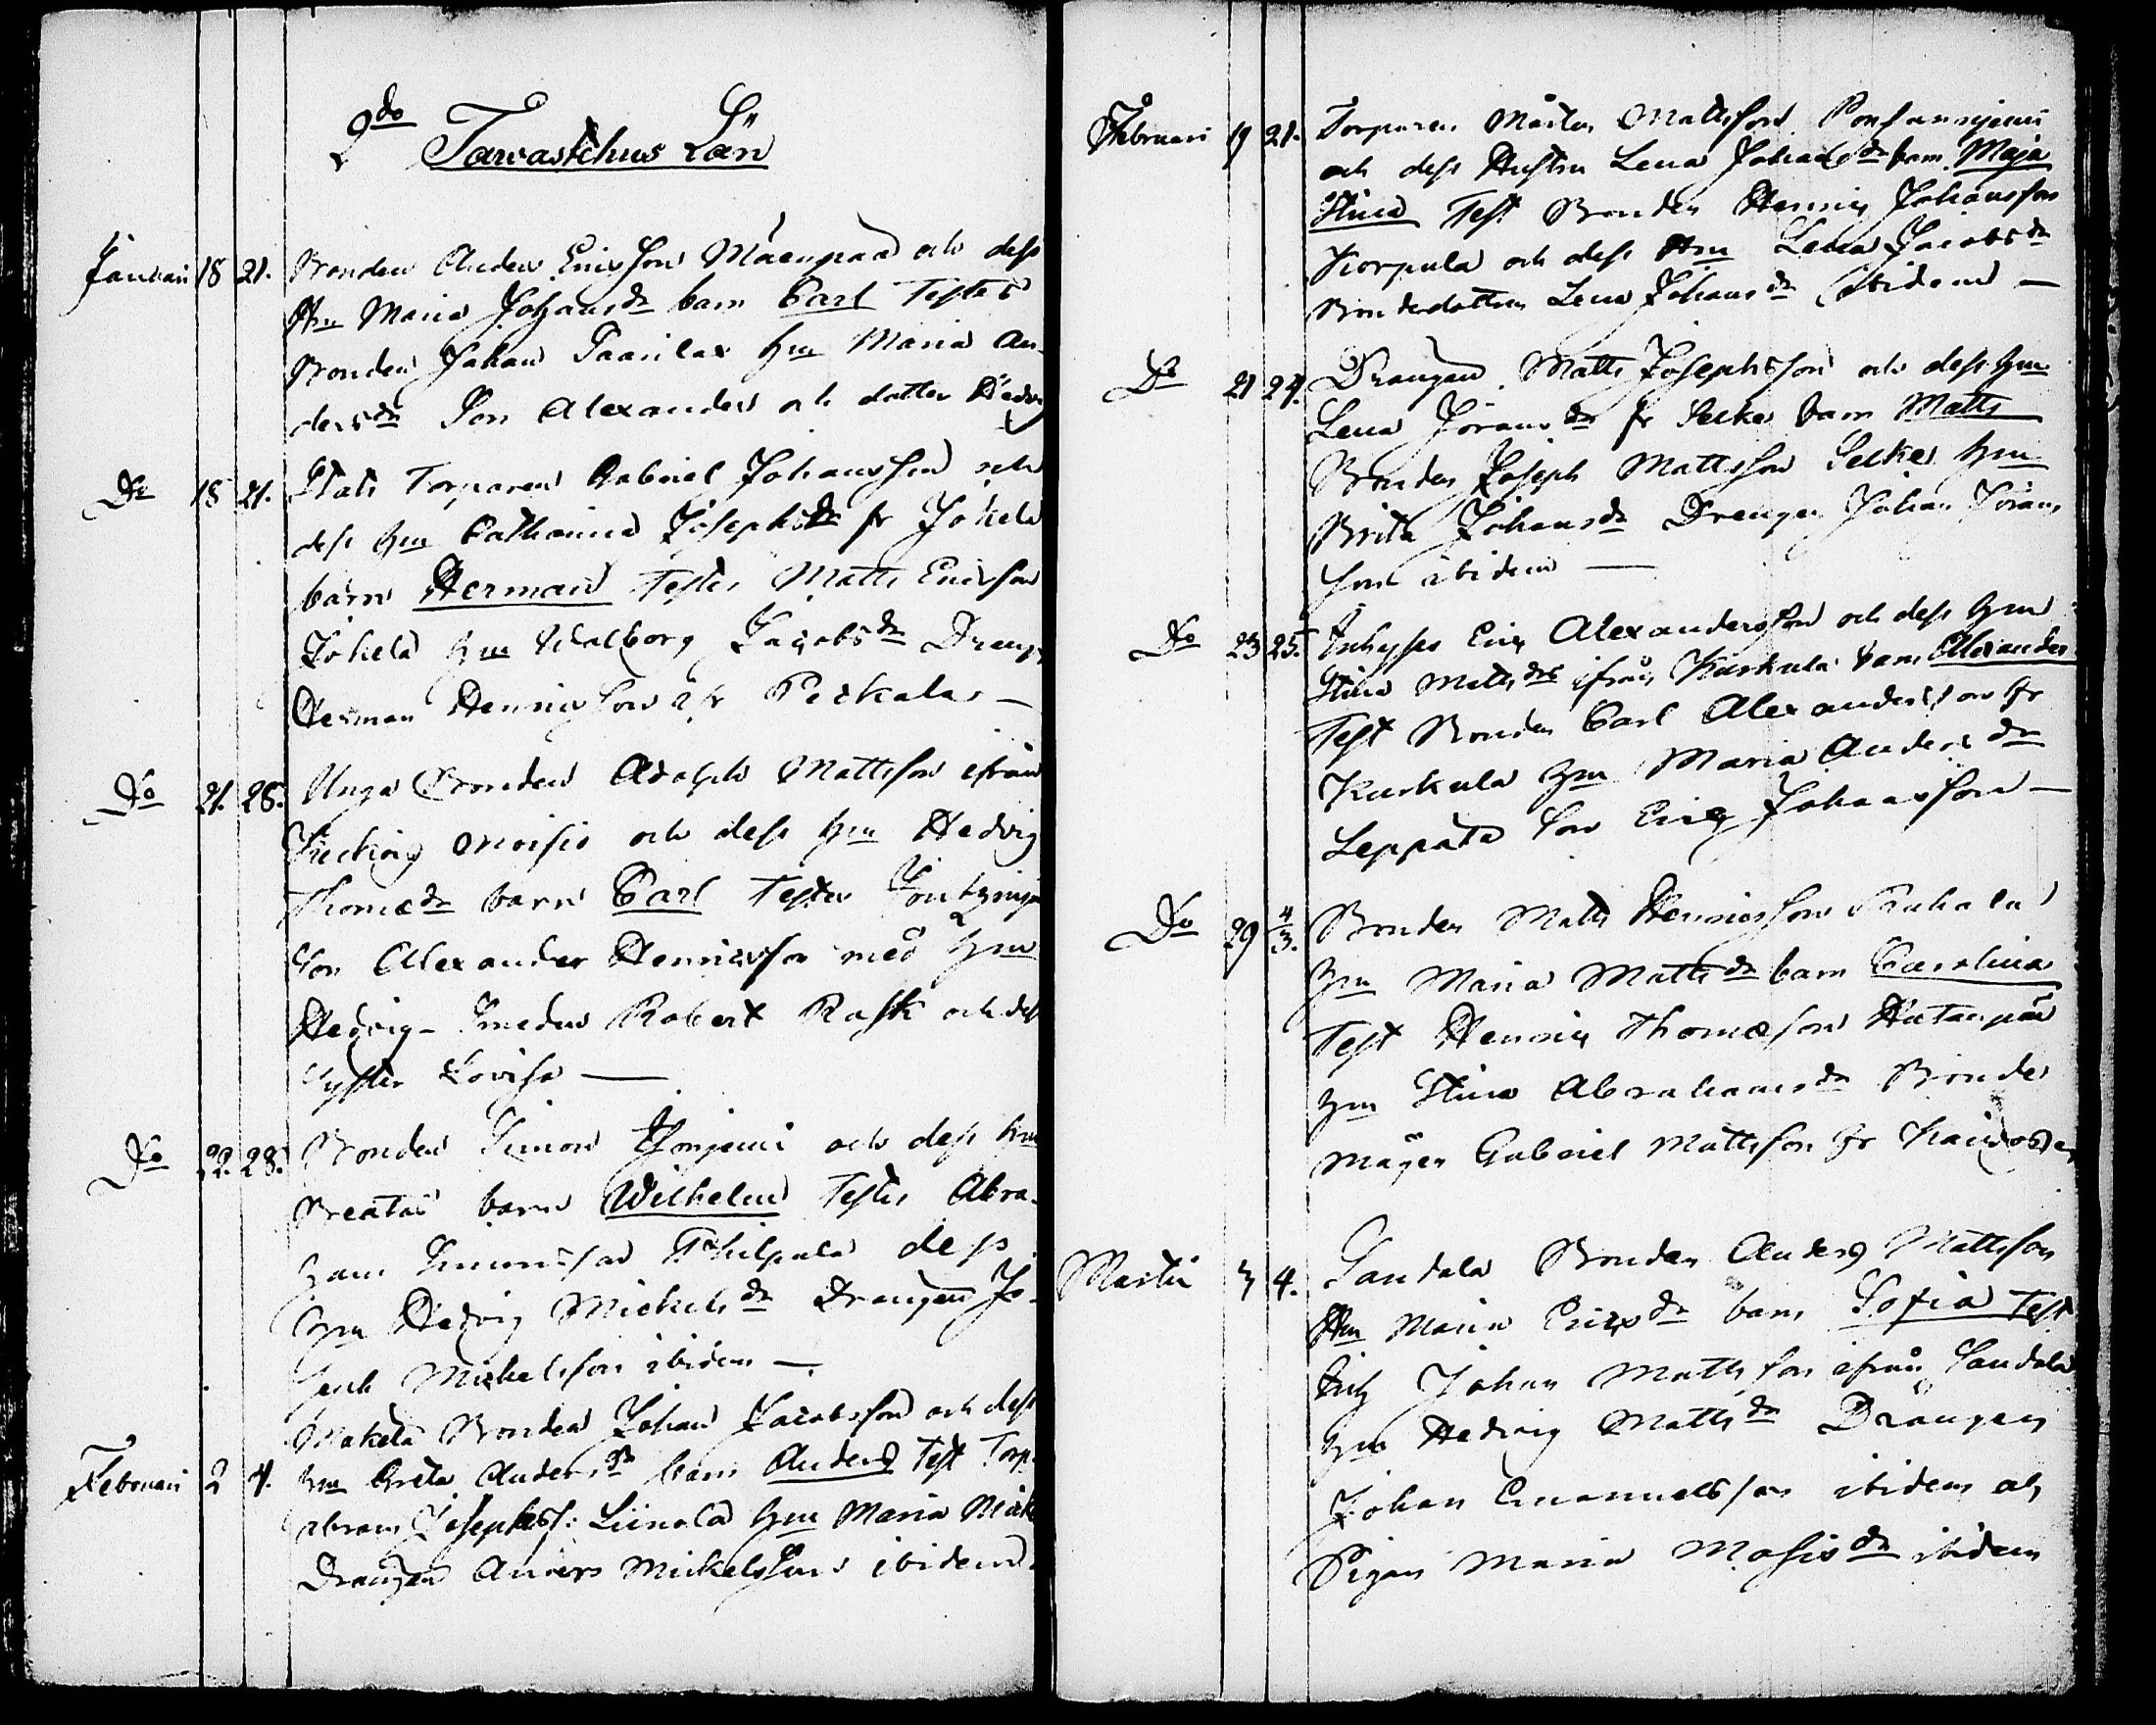 2do Tavastehus Län
Januari 18 21. Bonden Anders Ericsson Mäenpää och dess
Hu Maria Johansdr barn Carl Testes
Bonden Johan Paarilax hu Maria An-
dersdr Son Alexander och dotter Hedvig
Do 18 21. Stats Torparen Gabriel Johansson och
dess hu Catharina Josephsdr fr Jokela
barn Herman Testes Matts Ericsson
Jokela hu Walborg Jacobsdr Dreng
Herman Henricsson ifr Peckala —
Do 21. 28. Unga Bonden Adolph Mattsson ifrån
Moisio och dess hu Hedvig
Thomædr barn Carl Testes
Son Alexander Henricsson med hu
Hedvig - Smeden Robert Rask och dess
Syster Lovisa —
Do 22. 28. Bonden Simon och dess hu
Beata barn Wilhelm Testes Abra-
ham Simonsson Philpula dess
hu Hedvig Mickelsdr Drengen Jo-
seph Mickelsson ibidem —
Makela Bonden Johan Jacobsson och dess
Februari 2 4. hu Greta Andersdr barn Anders Test Torp
Abram Josephss: Liinala hu Maria Mick
Drengen Anders Mickelsson ibidem
Februari 19 21. Torparen Mårten Mattsson
och dess Hustru Lena Johansdr barn Maja
Stina Test Bonden Henric Johansson
Korpula och dess Hu Lena Jacobsdr
Bondedottren Lena Johansdr ibidem —
Do 21 24. Drengen Matts Josephsson och dess hu
Lena Jöransdr fr Secke barn Matts
Bonden Joseph Mattsson Secke hu
Brita Johansdr Drengen Johan Jörans
son ibidem —
Do 23 25. Inhyses Eric Alexandersson och dess hu
Stina Mattsdr ifrån Kurkula barn Alexander
Test Bonden Carl Alexandersson fr
Kurkula hu Maria Andersdr
Son Eric Johansson —
Do 29 4/3. Bonden Matts Henricsson
hu Maria Mattsdr barn Carolina
Test Henric Thomæson Hatanpää
hu Stina Abrahamsdr Bonde
mågen Gabriel Mattsson fr
Martii 3 4. Sandala Bonden Anders Mattsson
Hu Maria Ericsdr barn Sofia Test
Inh Johan Mattsson ifrån Sandala
hu Hedvig Mattsdr Drängen
Johan Emanuelsson ibidem och
Pigan Maria Mosisdr ibidem